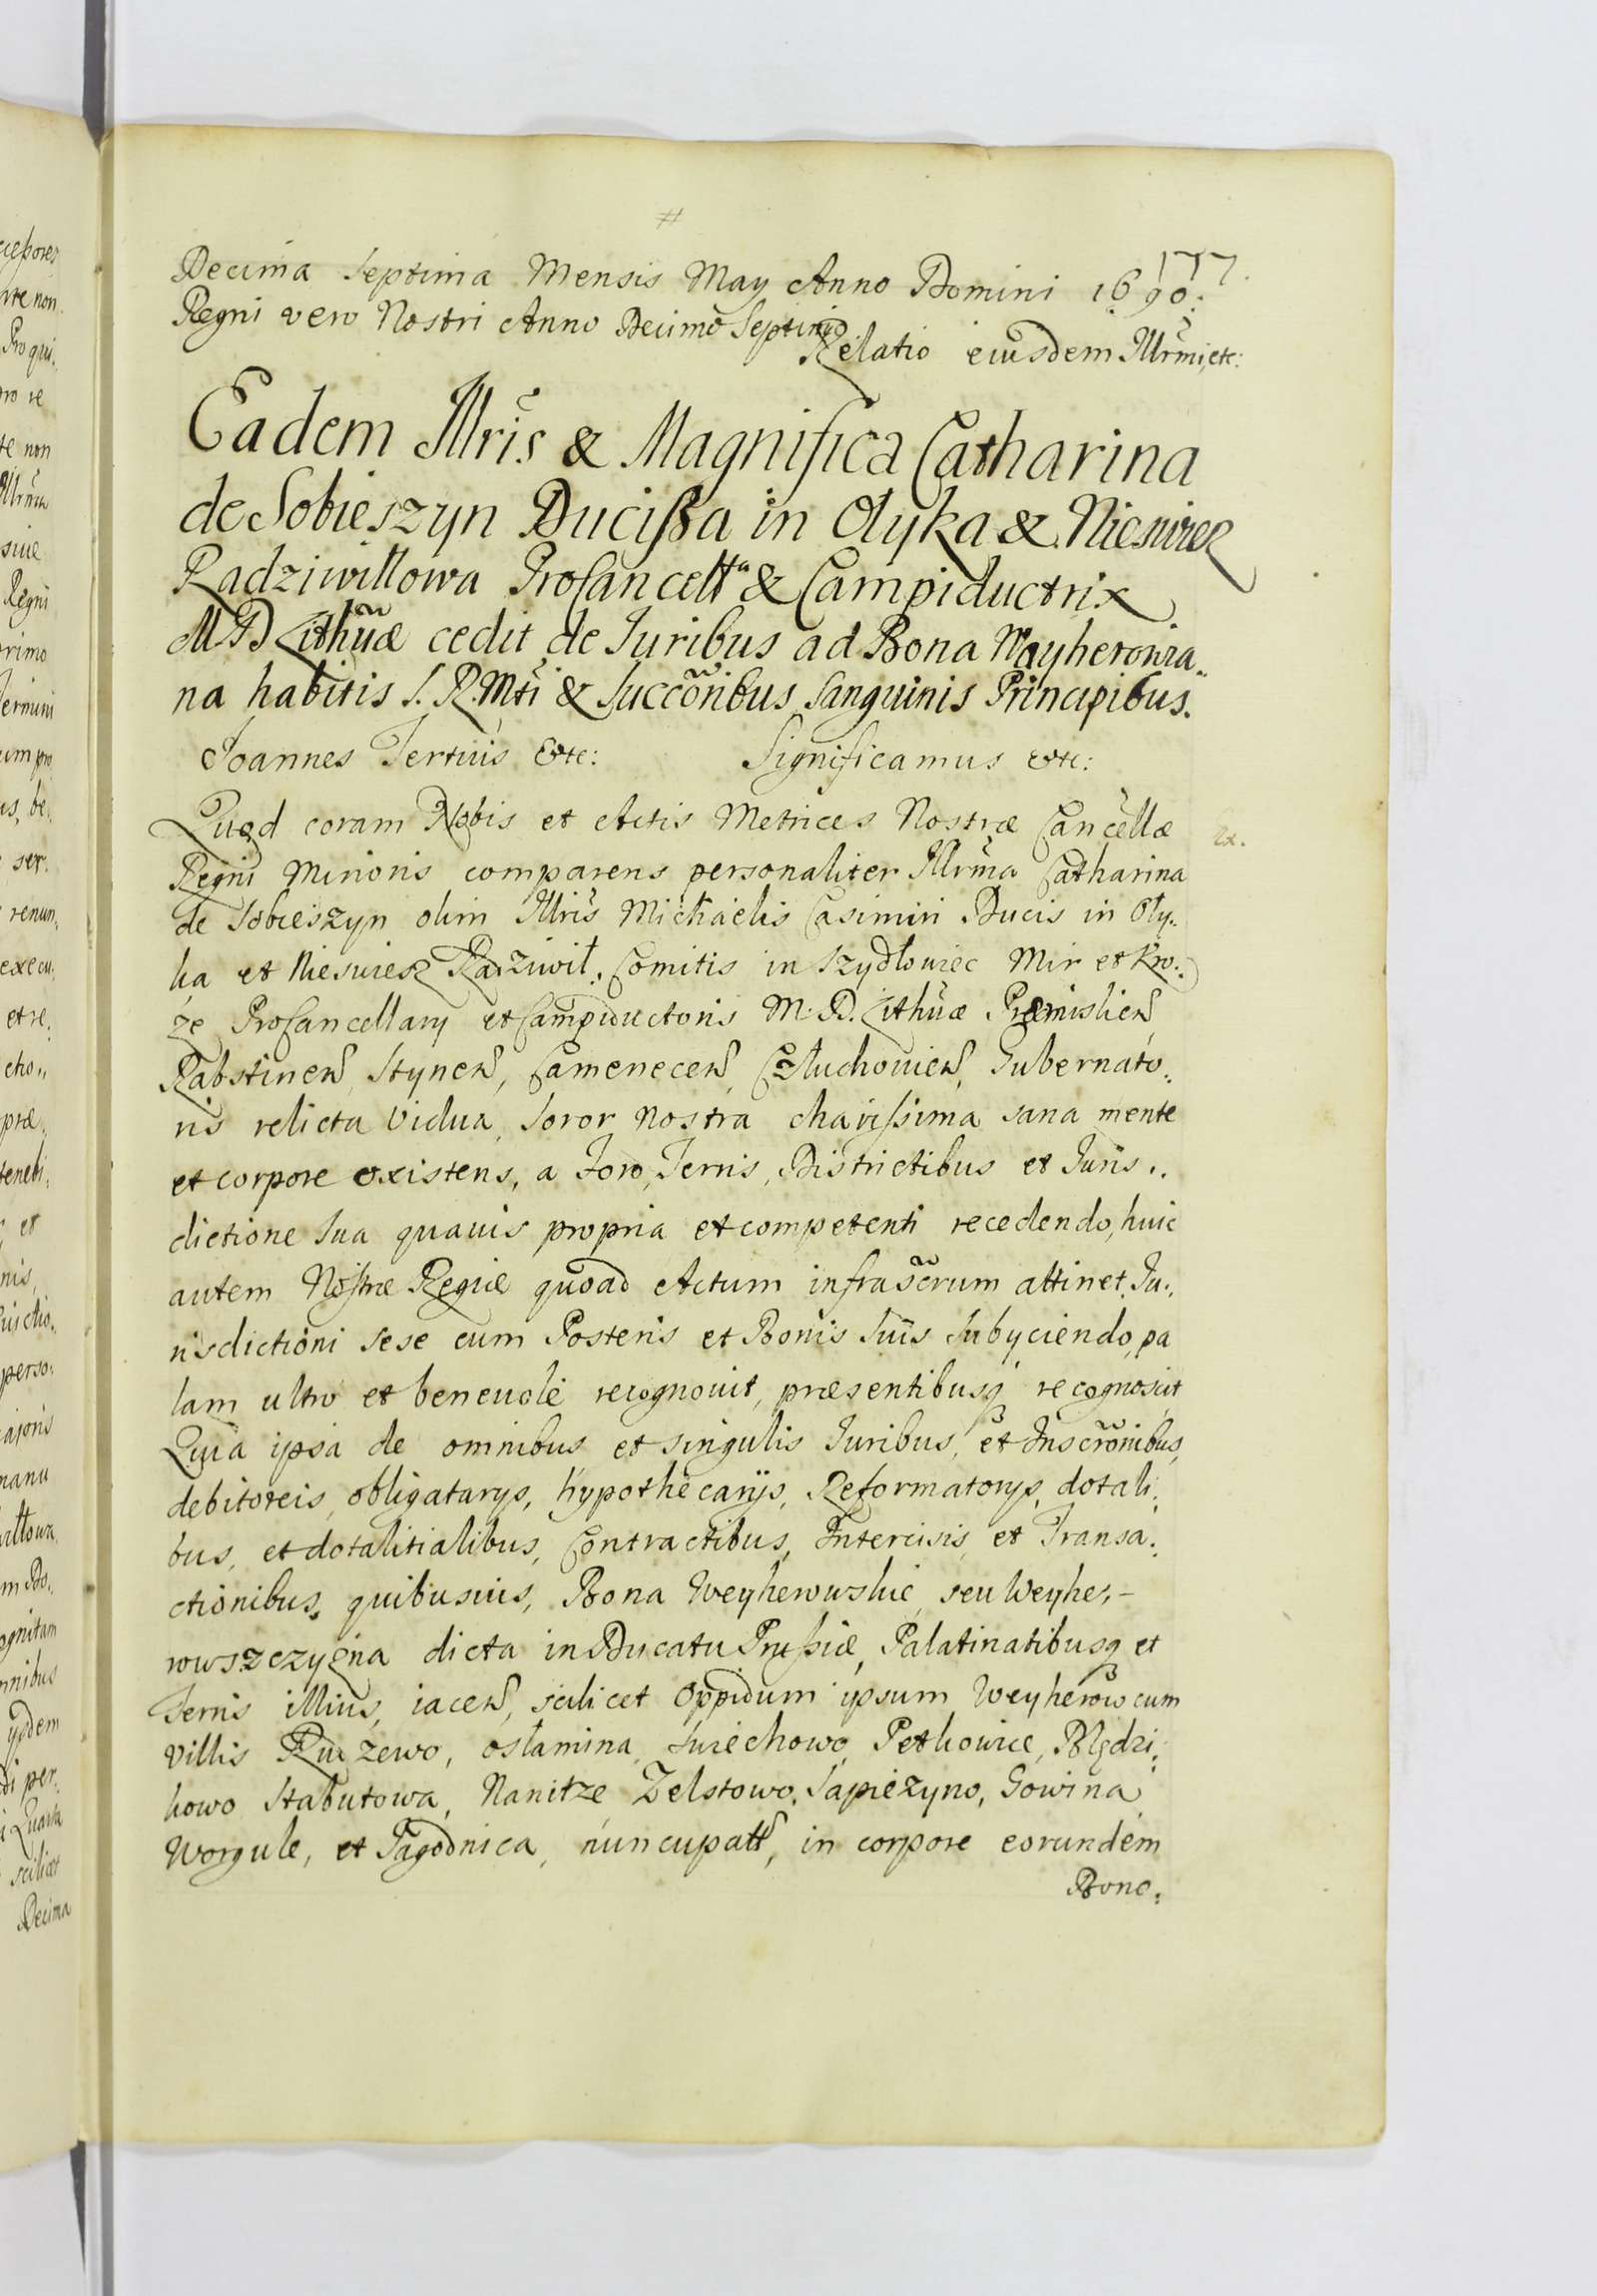 177.
Decima Septima Mensis May Anno Domini 1690.
Regni vero Nostri Anno Decimo Septimo
Relatio eiusdem Illrmi, etc:
Eadem Illris & Magnifica Catharina
de Sobieszyn Ducissa in Olyka & Nieswiez
Radziwillowa ProCancellª & Campiductrix
M. D. Lithuæ cedit de Iuribus ad Bona Wayherowia„
na habitis S. R. Mti & Succoribus Sanguinis Principibus.
Joannes Tertius &tc: Significamus &tc:
Quod coram Nobis et Actis Metrices Nostræ Cancellæ
Regni Minoris comparens personaliter Illrma Catharina
de Sobieszyn olim Illris Michaelis Casimiri Ducis in Oly„
ka et Nieswiesz Radziwił, Comitis in Szydłowiec Mir et Kro„
ze ProCancellarij et Campiductoris M. D. Lithuæ Præmislien̄,
Rabstinen̄, Stynen̄, Camenecen̄, Człuchovien̄, Gubernato„
ris relicta Vidua, Soror Nostra charissima sana mente
et corpore existens, a Foro, Terris, Districtibus et Juris„
dictione Sua quavis propria et competenti recedendo, huic
autem Nostræ Regiæ quoad Actum infrascrum attinet, Ju„
risdictioni sese cum Posteris et Bonis Suis Subyciendo, pa
lam ultro et benevole recognovit, præsentibusq́ recognoscit
Quia ipsa de omnibus et singulis Iuribus, et Inscronibus,
debitoreis, obligatarys, hypothecarijs, Reformatorys, dotali„
bus, et dotalitialibus, Contractibus, Intercisis, et Transa„
ctionibus, quibusuis, Bona Weyherowskie, seu Weyhe„
rowszczyzna dicta in Ducatu Prussiæ, Palatinatibusq et
Terris illius, iacen̄, scilicet Oppidum ipsum Weyherow cum
Villis Russzewo, osłamina, Swiechowo, Petkowice, Blędzi„
kowo Stabutowa, Nanitze Zelstowo, Sapieżyno, Gowina
Worgule, et Jagodnica, nuncupatt, in corpore eorundem
Bono„